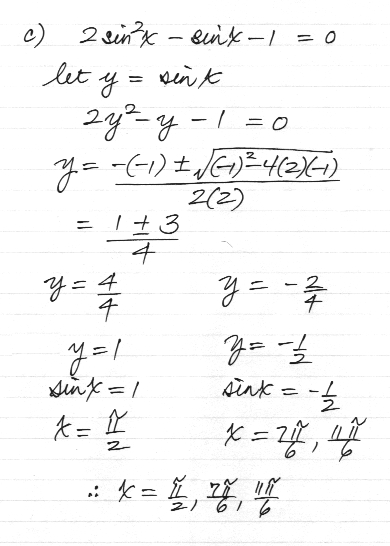 c) 2 sin²x - sin x - 1 = 0
let y = sin x
2y² - y - 1 = 0
y = -(-1) ± √(-1)² - 4(2)(-1) / 2(2)
= 1 ± 3 / 4
y = 4/4 y = -2/4
y = 1 y = -1/2
sin x = 1 sin x = -1/2
x = π/2 x = 7π/6, 11π/6
∴ x = π/2, 7π/6, 11π/6